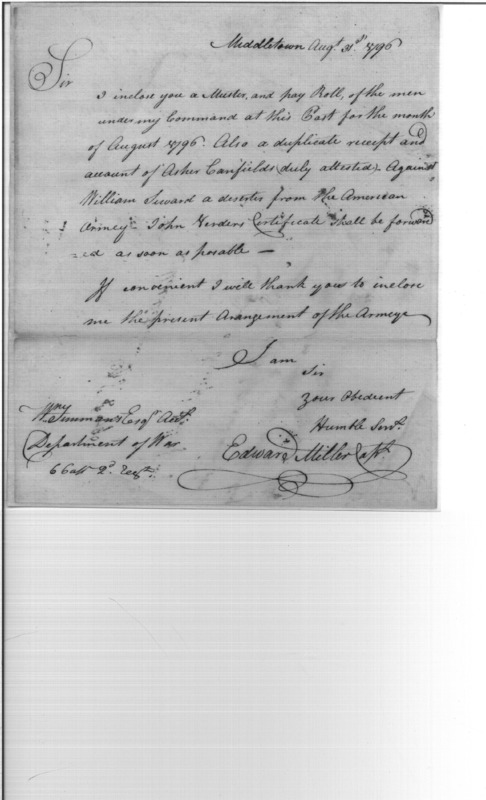 Middletown Augt. 31st. 1796
Sir
I inclose you a Muster, and pay Roll, of the men
under my Command at this Post for the month
of August 1796. Also a duplicate receipt and
account of Asher Canfields (duly attested). Against
William Seward a deserter from the American
Armey - John Certificate Shall be forward
ed as soon as posable —
If convenient I will thank you to inclose
me the present Arangement of the Armeye
I am
Sir
Your Obedient
Humble Servt.
Edward Miller Capt.
Wm. Simmons Esqr. Acct.
Department of War